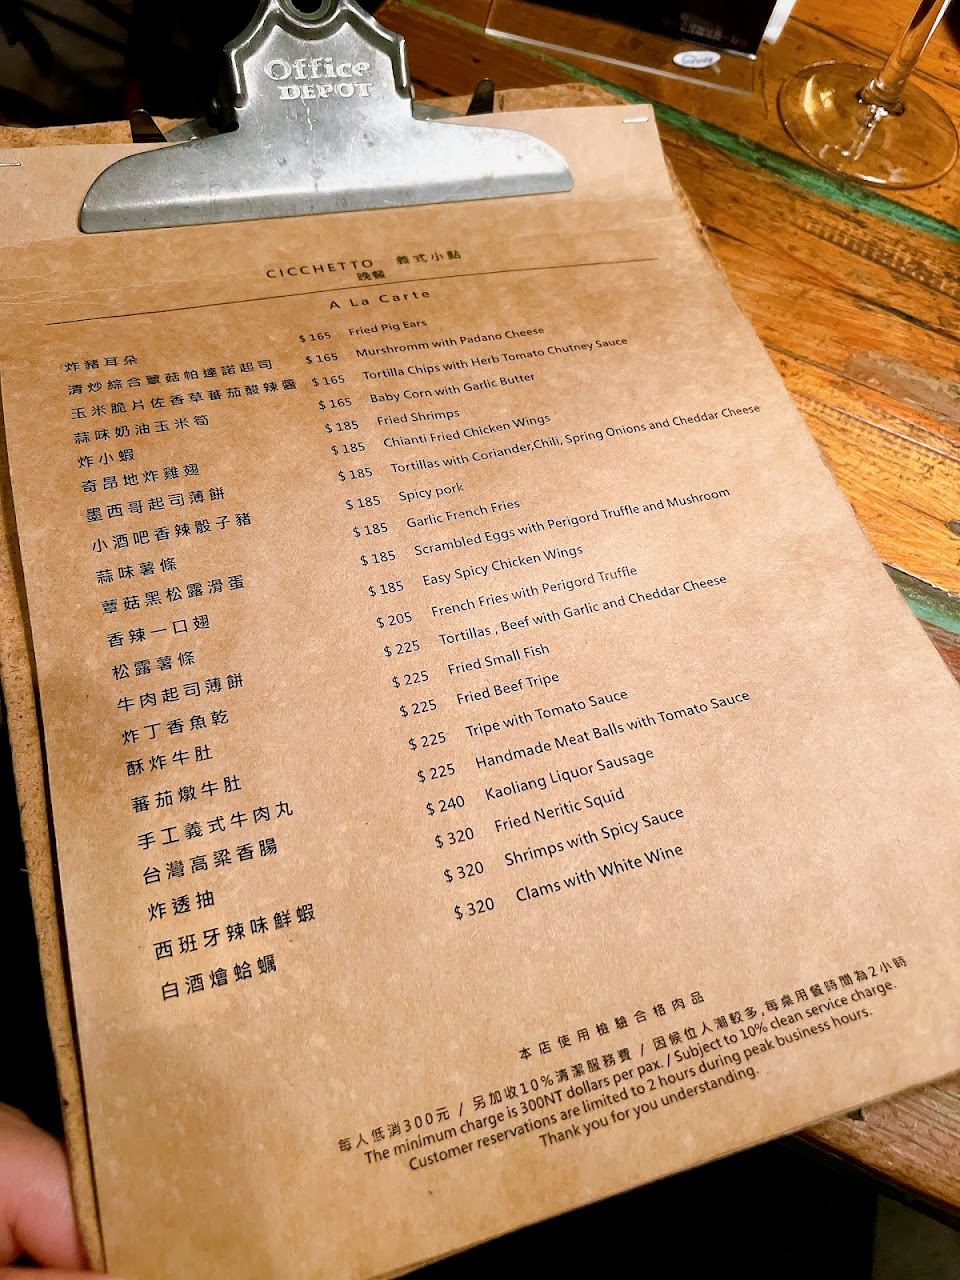 Office
DEPOT
CICCHETTO 義式小點
晚餐
A La Carte
炸豬耳朵 $ 165 Fried Pig Ears
清炒綜合蕈菇帕達諾起司 $ 165 Murshromm with Padano Cheese
玉米脆片佐香草蕃茄酸辣醬 $ 165 Tortilla Chips with Herb Tomato Chutney Sauce
蒜味奶油玉米筍 $ 165 Baby Corn with Garlic Butter
炸小蝦 $ 185 Fried Shrimps
奇昂地炸雞翅 $ 185 Chianti Fried Chicken Wings
墨西哥起司薄餅 $ 185 Tortillas with Coriander,Chili, Spring Onions and Cheddar Cheese
小酒吧香辣骰子豬 $ 185 Spicy pork
蒜味薯條 $ 185 Garlic French Fries
蕈菇黑松露滑蛋 $ 185 Scrambled Eggs with Perigord Truffle and Mushroom
香辣一口翅 $ 185 Easy Spicy Chicken Wings
松露薯條 $ 205 French Fries with Perigord Truffle
牛肉起司薄餅 $ 225 Tortillas , Beef with Garlic and Cheddar Cheese
炸丁香魚乾 $ 225 Fried Small Fish
酥炸牛肚 $ 225 Fried Beef Tripe
蕃茄燉牛肚 $ 225 Tripe with Tomato Sauce
手工義式牛肉丸 $ 225 Handmade Meat Balls with Tomato Sauce
台灣高粱香腸 $ 240 Kaoliang Liquor Sausage
炸透抽 $ 320 Fried Neritic Squid
西班牙辣味鮮蝦 $ 320 Shrimps with Spicy Sauce
白酒燴蛤蠣 $ 320 Clams with White Wine
本店使用檢驗合格肉品
每人低消300元 / 另加收10%清潔服務費 / 因候位人潮較多,每桌用餐時間為2小時
The minimum charge is 300NT dollars per pax. / Subject to 10% clean service charge.
Customer reservations are limited to 2 hours during peak business hours.
Thank you for you understanding.